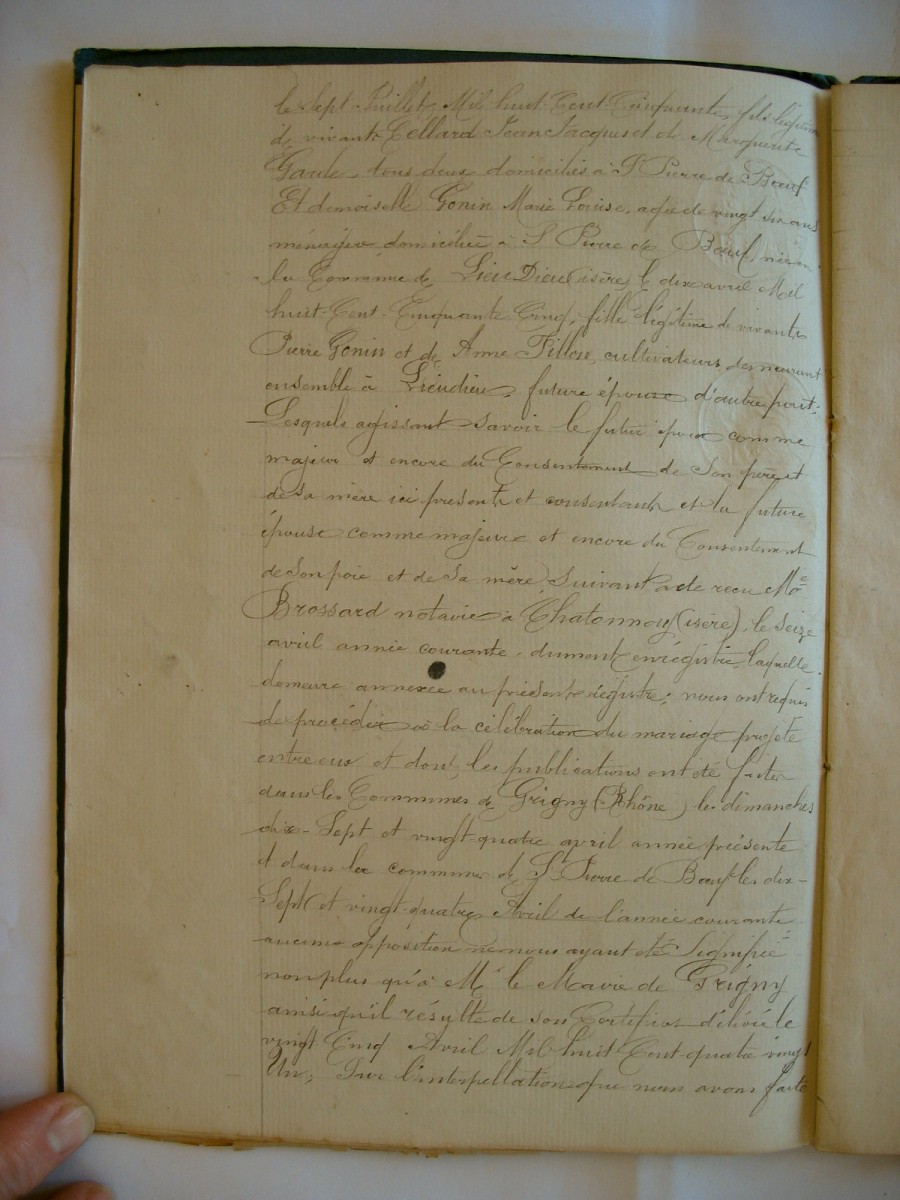 le Sept Juillet Mil huit Cent Cinquante, fils légitime
de vivants Cellard Jean Jacques et de Marguerite
Gaude tous deux domiciliés à St Pierre de Bœuf
Et demoiselle Gonin Marie Louise, agée de vingt six ans
ménagère domiciliée à St Pierre de Bœuf, née en
la Commune de Lieu Dieu (isère) le dix avril Mil
huit-Cent-Cinquante Cinq, fille légitime de vivants
Pierre Gonin et de Anne Fillon, cultivateurs demeurant
ensemble à Lieudieu, future épouse d'autre part;
Lesquels agissant savoir le futur époux comme
majeur et encore du Consentement de son père et
de sa mère ici présents et consentants et la future
épouse comme majeure et encore du Consentement
de son père et de sa mère, Suivant acte recu Me
Brossard notaire à Chatonnay (isère), le seize
avril année courante, dument enrégistré, laquelle
demeure annexée au présent régistre; nous ont requis
de procéder à la célébration du mariage projeté
entre eux et dont les publications ont été faites
dans les Communes de Grigny (Rhône) les dimanches
dix-Sept et vingt-quatre avril année présente
et dans la commune de St Pierre de Bœuf les dix-
Sept et vingt-quatre Avril de l'année courante
aucune opposition ne nous ayant été Signifiée
non plus qu'à Mr le Maire de Grigny
ainsi qu'il résulte de son Certificat délivré le
vingt Cinq Avril Mil huit Cent quatre vingt
Un; Sur l'interpellation que nous avons faite